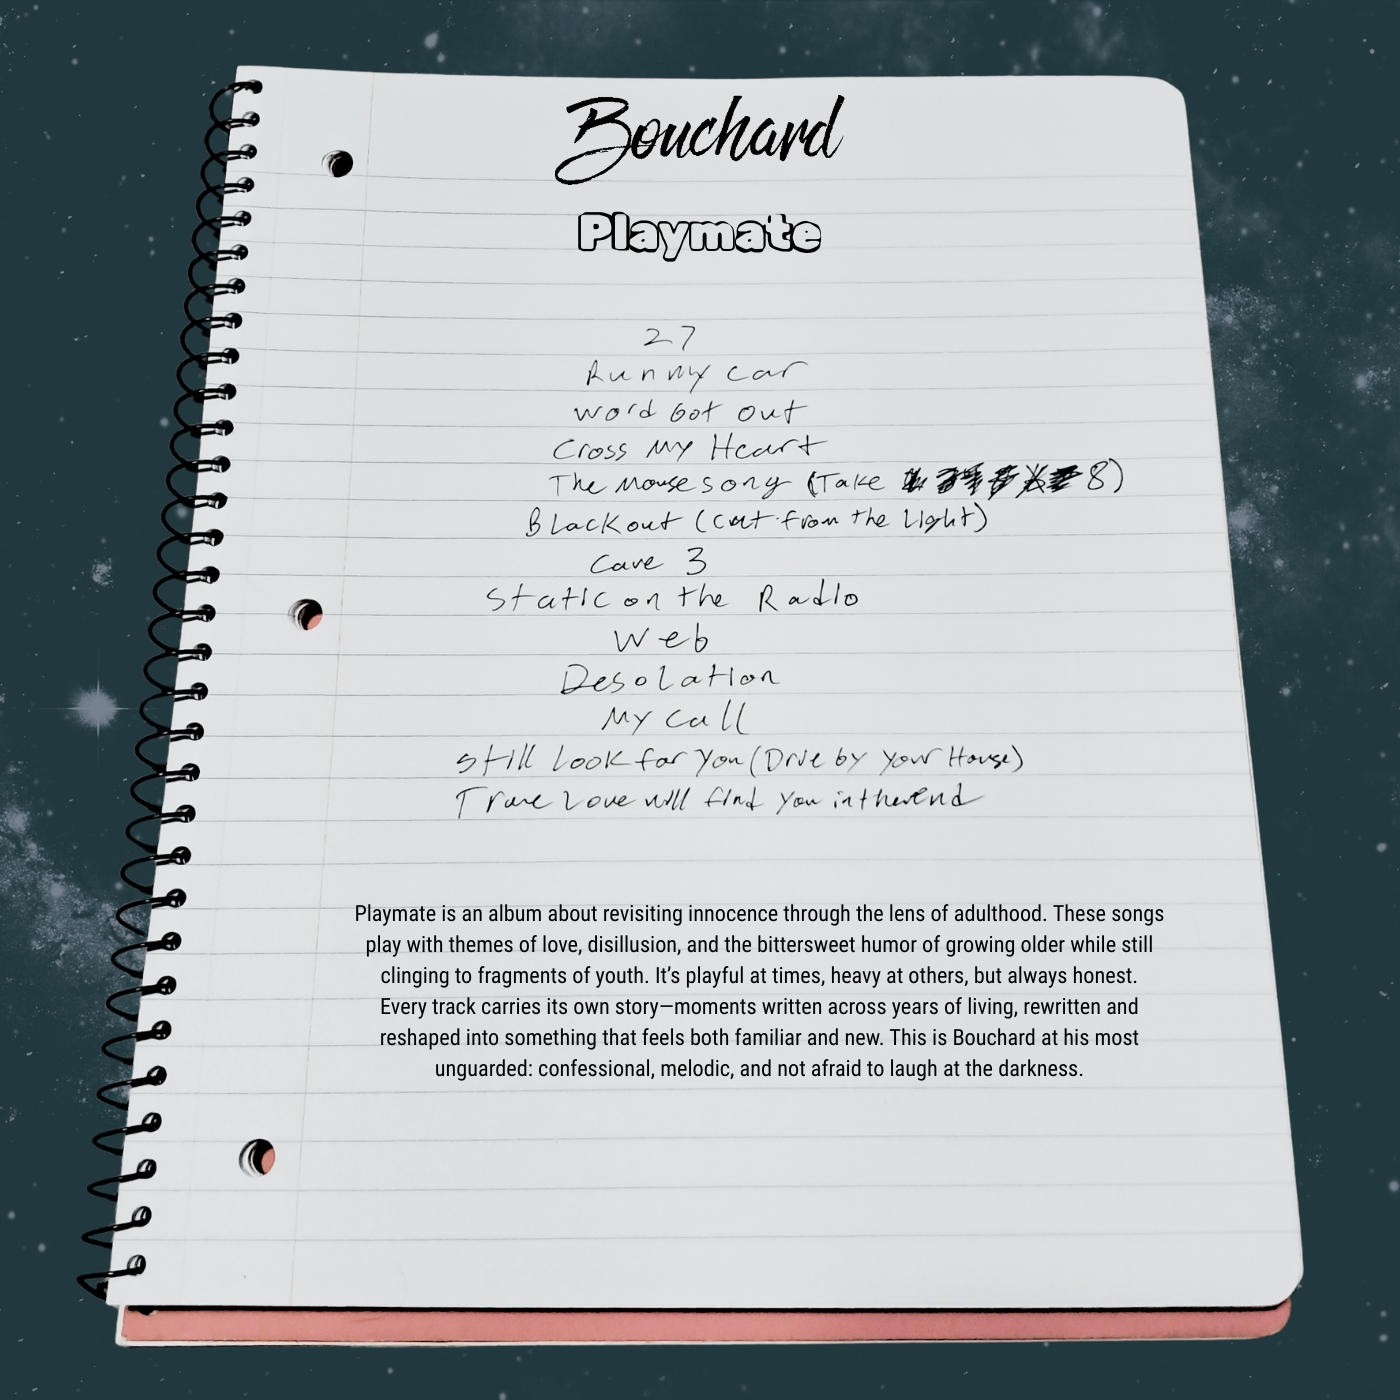 Bouchard
Playmate
27
Run my car
Word Got Out
Cross My Heart
The Mouse song (Take 8)
Blackout (cut from the Light)
Cave 3
Static on the Radio
Web
Desolation
My Call
Still Look for You (Drive by your House)
True Love will find you in the end
Playmate is an album about revisiting innocence through the lens of adulthood. These songs
play with themes of love, disillusion, and the bittersweet humor of growing older while still
clinging to fragments of youth. It’s playful at times, heavy at others, but always honest.
Every track carries its own story—moments written across years of living, rewritten and
reshaped into something that feels both familiar and new. This is Bouchard at his most
unguarded: confessional, melodic, and not afraid to laugh at the darkness.